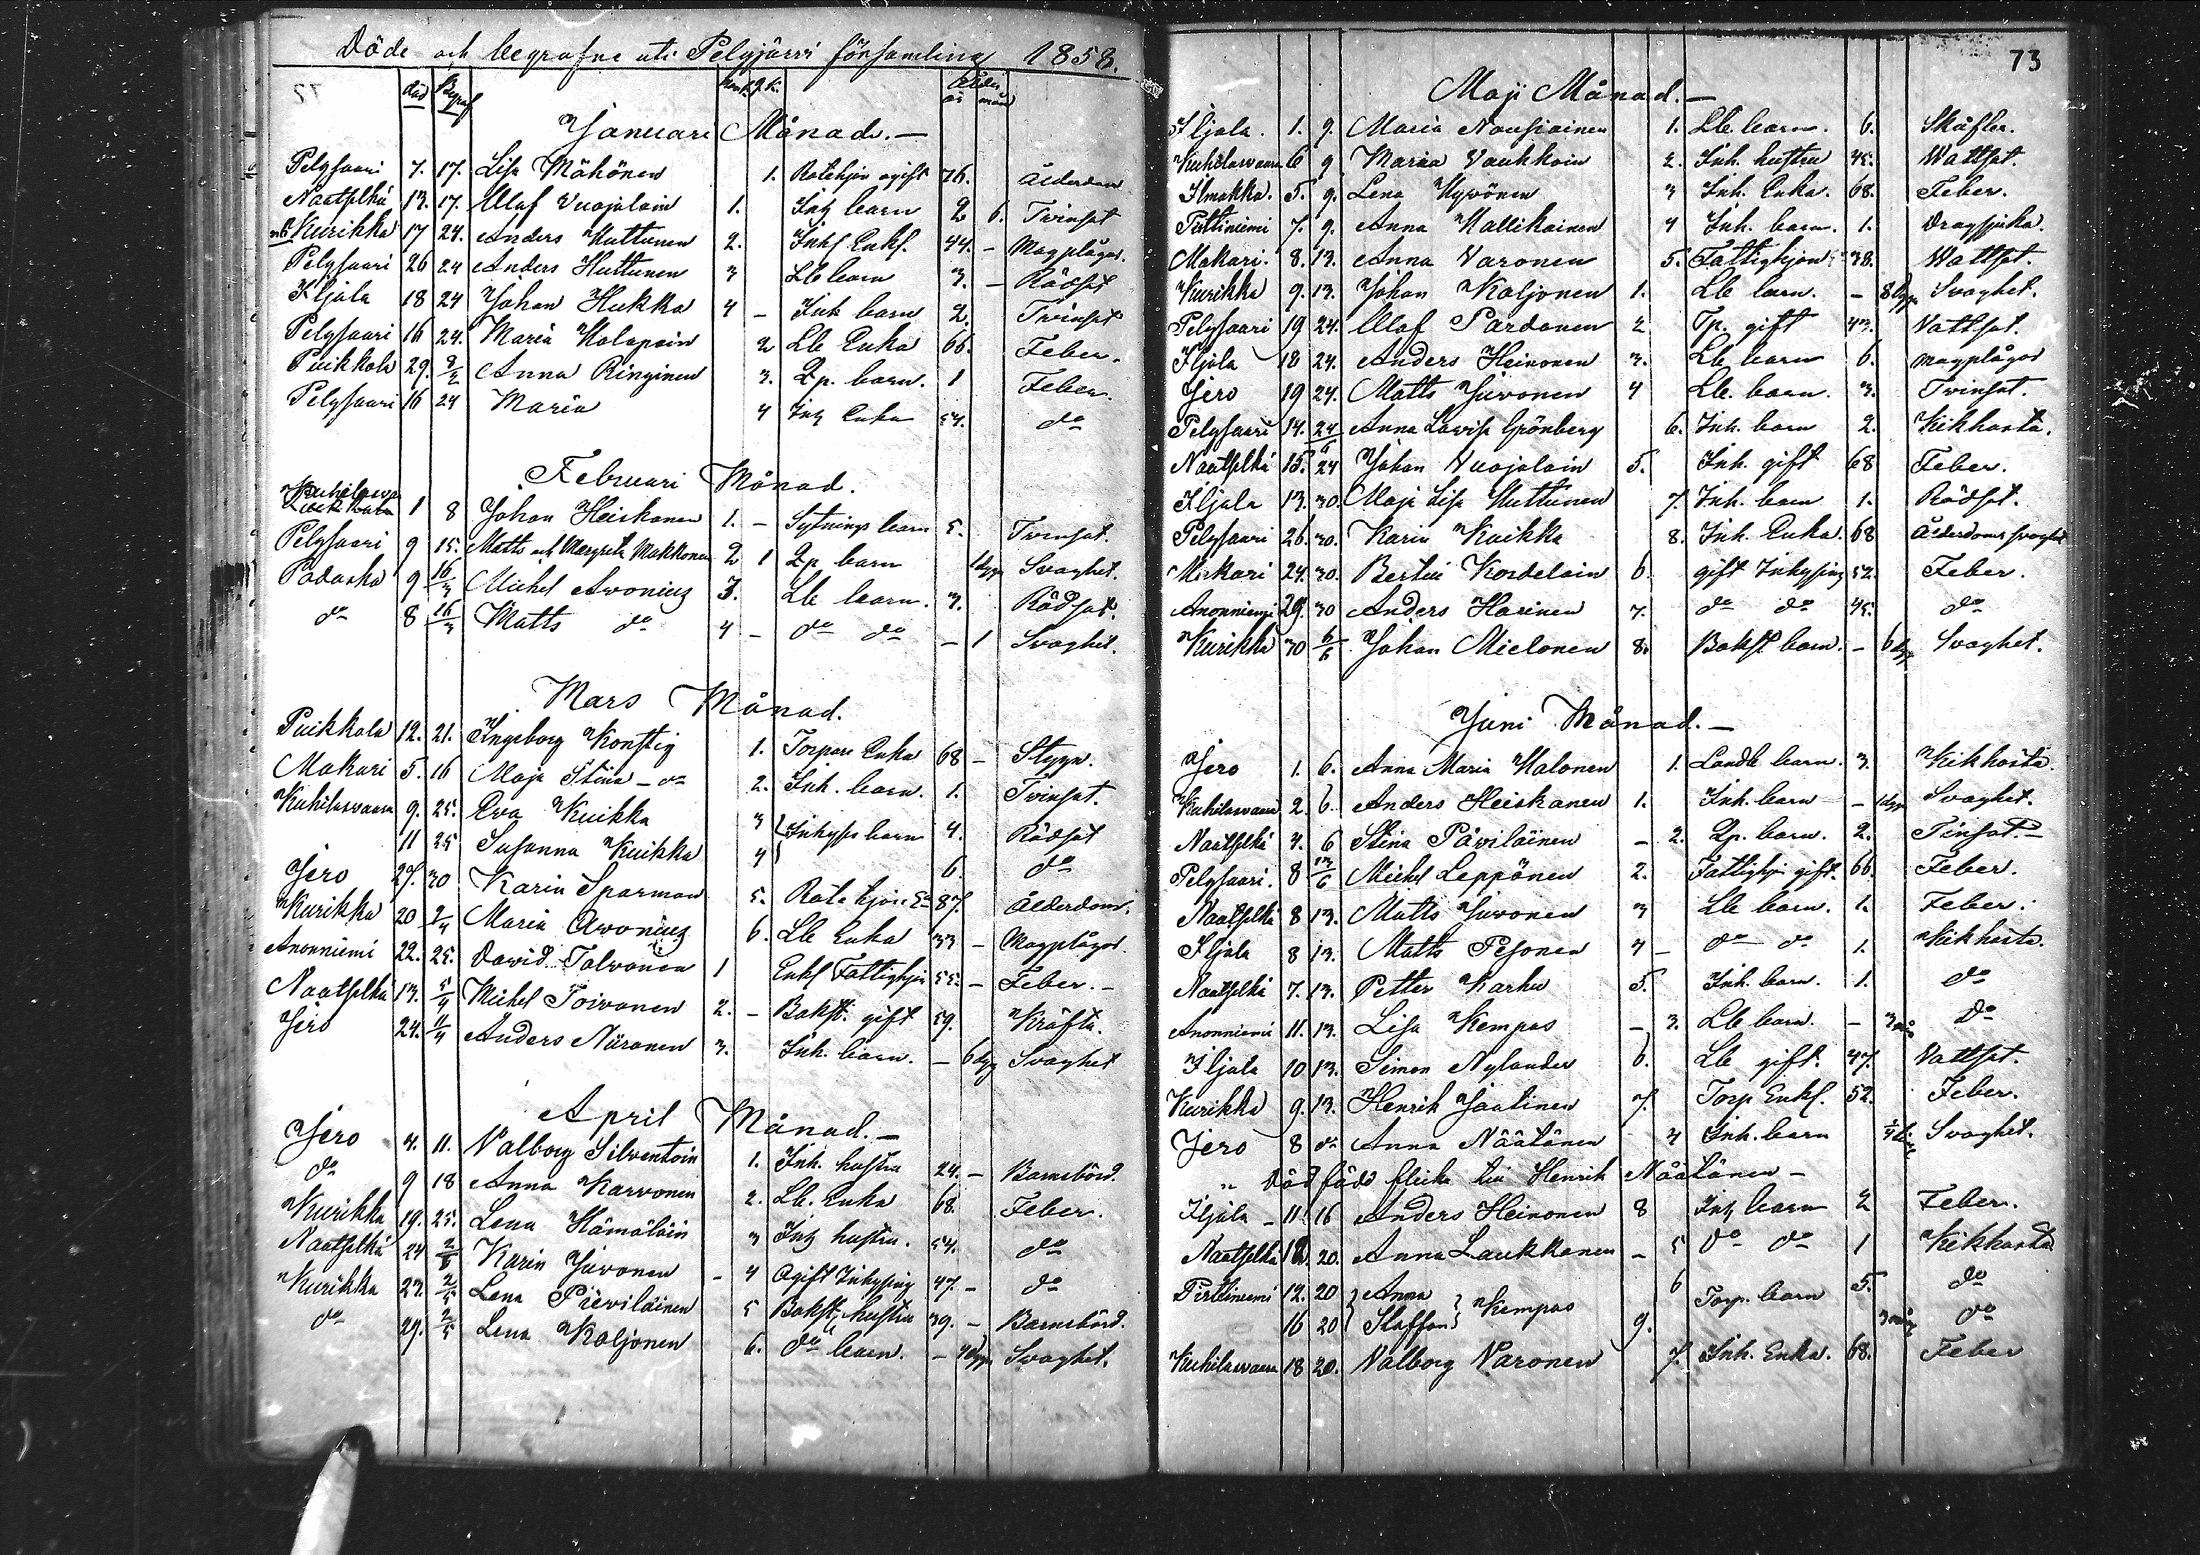 Döde och begrafne uti Pelgjärvi församling 1858.
död Begraf Mank. Q.k. Ålder
år mån
Januari Månad. —
Pelgsaari 7. 17. Lisa Möhönen 1. Rotehjon ogift 76. Ålderdom
Naatselkä 13. 17. Olof Vuojolain 1. Inh barn 2 6. Tvinsot
Kurikka 17 24. Anders Huttunen 2. Inhs Enkl. 44. — Magplågor
Pelgsaari 26 24 Anders Huttunen 3 Lb barn 3. — Rödsot
Iljala 18 24 Johan Hukka 4 — Inh barn 2. Tvinsot
Pelgsaari 16 24. Maria Holopain 2 Lb Enka 66. Feber.
Puikkola 29. 8/2 Anna Ringinen 3. Lp. barn. 1 Feber.
Pelgsaari 16 24 Maria 4 Inh Enka 54. do
Februari Månad.
Kuhilasva 1 8 Johan Heiskanen 1. — Sytnings barn 5. Tvinsot.
Pelgsaari 9 15. Matts och Margreta Makkonen 2 1 Lp barn 1 dygn Svaghet.
Padaska 9 16/3 Michel Avonius 3. Lb barn. 3. Rödsot.
do 8 16/3 Matts do 4 — do do — 1 Svaghet.
Mars Månad.
Puikkola 12. 21. Ingeborg Konstig 1. Torpare Enka 68 — Stygn.
Makari 5. 16 Maja Stina — do 2. Inh. barn. 1. Tvinsot.
Kuhilasvaara 9. 25. Eva Kuikka 3 Inhyses barn 4. Rödsot
11 25 Susanna Kuikka 4 6. do
Jero 27. 30 Karin Sparman 5. Rote hjon Ea 87. Ålderdom.
Kurikka 20 2/4 Maria Avonius 6. Lb Enka 33 — Magplågor.
Anonniemi 22. 25. David Tolvonen 1 Enkl Fattighjon 55. — Feber. —
Naatselkä 13. 5/4 Michel Toivonen 2. — Bakst. gift 59. Kräfta.
Jero 24. 11/4 Anders Näronen 3. Inh. barn. — 6 dyg Svaghet
April Månad. —
Jero 4. 11. Valborg Silventoin 1. Inh. hustru 24. — Barnsbörd.
do 9 18 Anna Karvonen 2. Lb. Enka 68. Feber.
Kurikka 19. 25. Lena Hämäläin 3 Inh hustru. 54. do
Naatselkä 24 2/5 Karin Juvonen — 4 Ogift Inhysing 47. — do
Kurikka 23. 2/5 Lena Pieviläinen 5 Bakst. hustru 39. — Barnsbörd.
do 29. 2/5 Lena Koljonen 6. do barn. — 4 dygn Svaghet.
73
Maji Månad. —
Iljala. 1. 9. Maria Nousiainen 1. Lb. barn. 6. Skåfler.
Kuhilasvaara 6 9 Maria Vaukkoin 2. Inh. hustru 45. Wattsot.
Ilmakka. 5. 9. Lena Hyvönen 3 Inh. Enka. 68. Feber.
Pirttiniemi 7. 9. Anna Hallikainen 4 Inh. barn. 1. Dragsjuka.
Makari. 8. 13. Anna Varonen 5. Fattighjon 38. Wattsot.
Kurikka 9. 13. Johan Koljonen 1. Lb barn. — 8 dygn Svaghet.
Pelgsaari 19 24. Olof Pardanen 2 Tp. gift 43. Vattsot.
Iljala 18 24. Anders Heinonen 3. Lb barn 6. Magplågor
Jero 19 24. Matts Juvonen 4 Lb. barn. 3. Tvinsot.
Pelgsaari 14. 24 Anna Lovisa Grönberg 6. Inh. barn 2. Kikhosta.
Naatselkä 15. 24 Johan Vuojolain 5. Inh. gift 68 Feber.
Iljala 13. 30. Maja Lisa Huttunen 7. Inh. barn 1. Rödsot.
Pelgsaari 26. 30. Karin Kuikka 8. Inh. Enka. 68 Ålderdoms svaghet
Makari 24. 30. Bertil Kordelain 6. gift Inhysing 52. Feber.
Anonniemi 29. 30 Anders Harinen 7. do do 45. do
Kurikka 30 6/6 Johan Mielonen 8. Bakst barn. — 6 dyg Svaghet.
Juni Månad. —
Jero 1. 6. Anna Maria Halonen 1. Landb barn. 3. Kikhosta.
Kuhilasvaara 2. 6. Anders Heiskanen 1. Inh. barn — 1 dyg Svaghet.
Naatselkä 4. 6 Stina Päviläinen — 2. Lp. barn. 2. Tinsot. —
Pelgsaari. 8 13/6 Michel Leppönen 2. Fattighjon gift. 66. Feber.
Naatselkä 8 13. Matts Juvonen 3 Lb barn. 1. Feber.
Iljala 8 13. Matts Pesonen 4 — do do 1. Kikhosta.
Naatselkä 7. 13. Petter Karhu 5. Inh. barn. 1. do
Anonniemi 11. 13. Lisa Kempas — 3. Lb barn. — 3 mån Do
Iljala 10 13. Simon Nylander 6. Lb gift. 47. Vattsot.
Kurikka 9. 13. Henrik Jaatinen 7. Torp Enkl. 52. Feber.
Jero 8 do Anna Näätänen 4 Inh. barn Svaghet.
" Död född flicka till Henrik Näätänen —
Iljala — 11. 16 Anders Heinonen 8 Inh barn 2 Feber.
Naatselkä 18. 20. Anna Laukkanen — 5 do do 1 Kikhosta
Pirttiniemi 12. 20 } Anna } Kempas 6 Torp. barn 5. do
16 20 } Staffan } 9. 3 mån do
Kuhilasvaara 18 20. Valborg Varonen 7. Inh. Enka. 68. Feber